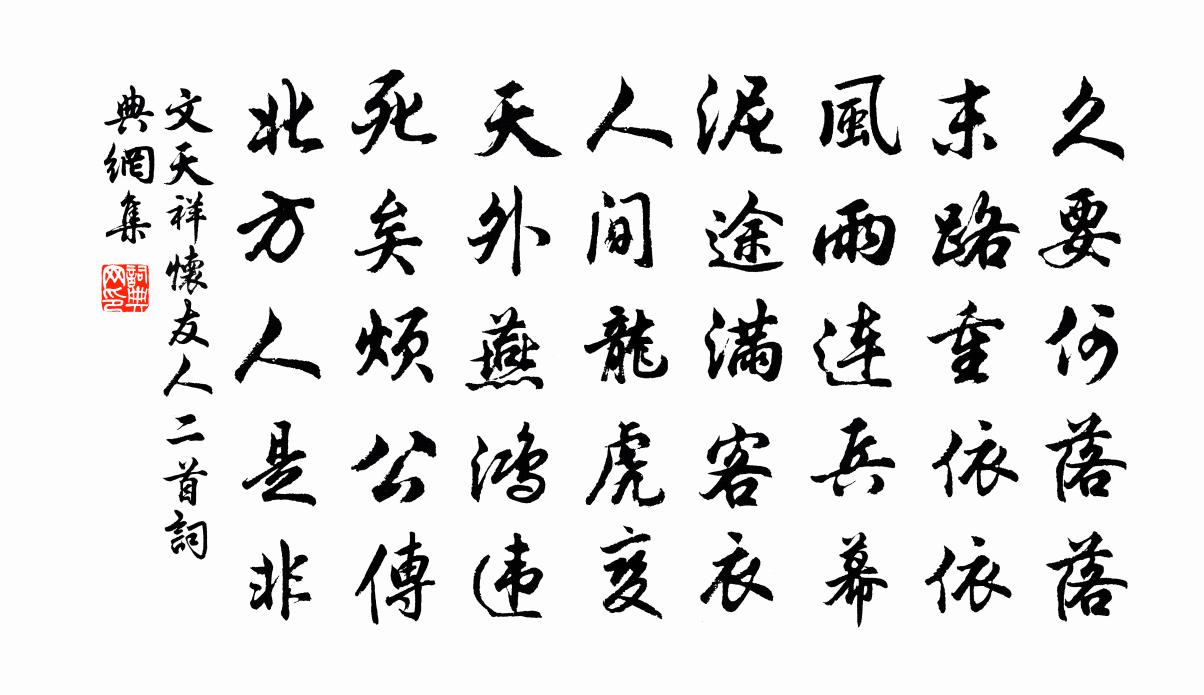 久要何落落
末路重依依
風雨連兵幕
泥途滿客衣
人間龍虎變
天外燕鴻違
死矣煩公傳
北方人是非
文天祥懷友人二首詞
典網集
詞典
网印